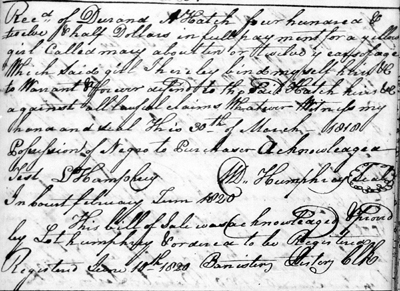 Recd. of Durand Hatch four hundred &
twelve & half Dollars in full payment for a yellow
girl Called mary about ten or twelve years of age
Which said girl I hereby bind myself heirs &c
to Warrant & forever defend to the said Hatch heirs &c
against all lawful claims Whatever Witness my
hand and seal This 30th of March 1818
Possession of Negro to Purchaser Acknowledged
Test L Humphrey Wm. Humphrey Seal
In Court february Term 1820
This bill of Sale was acknowledged & Proved
by Lot Humphrey & ordered to be Registered
Registered June 10th 1820 Clk